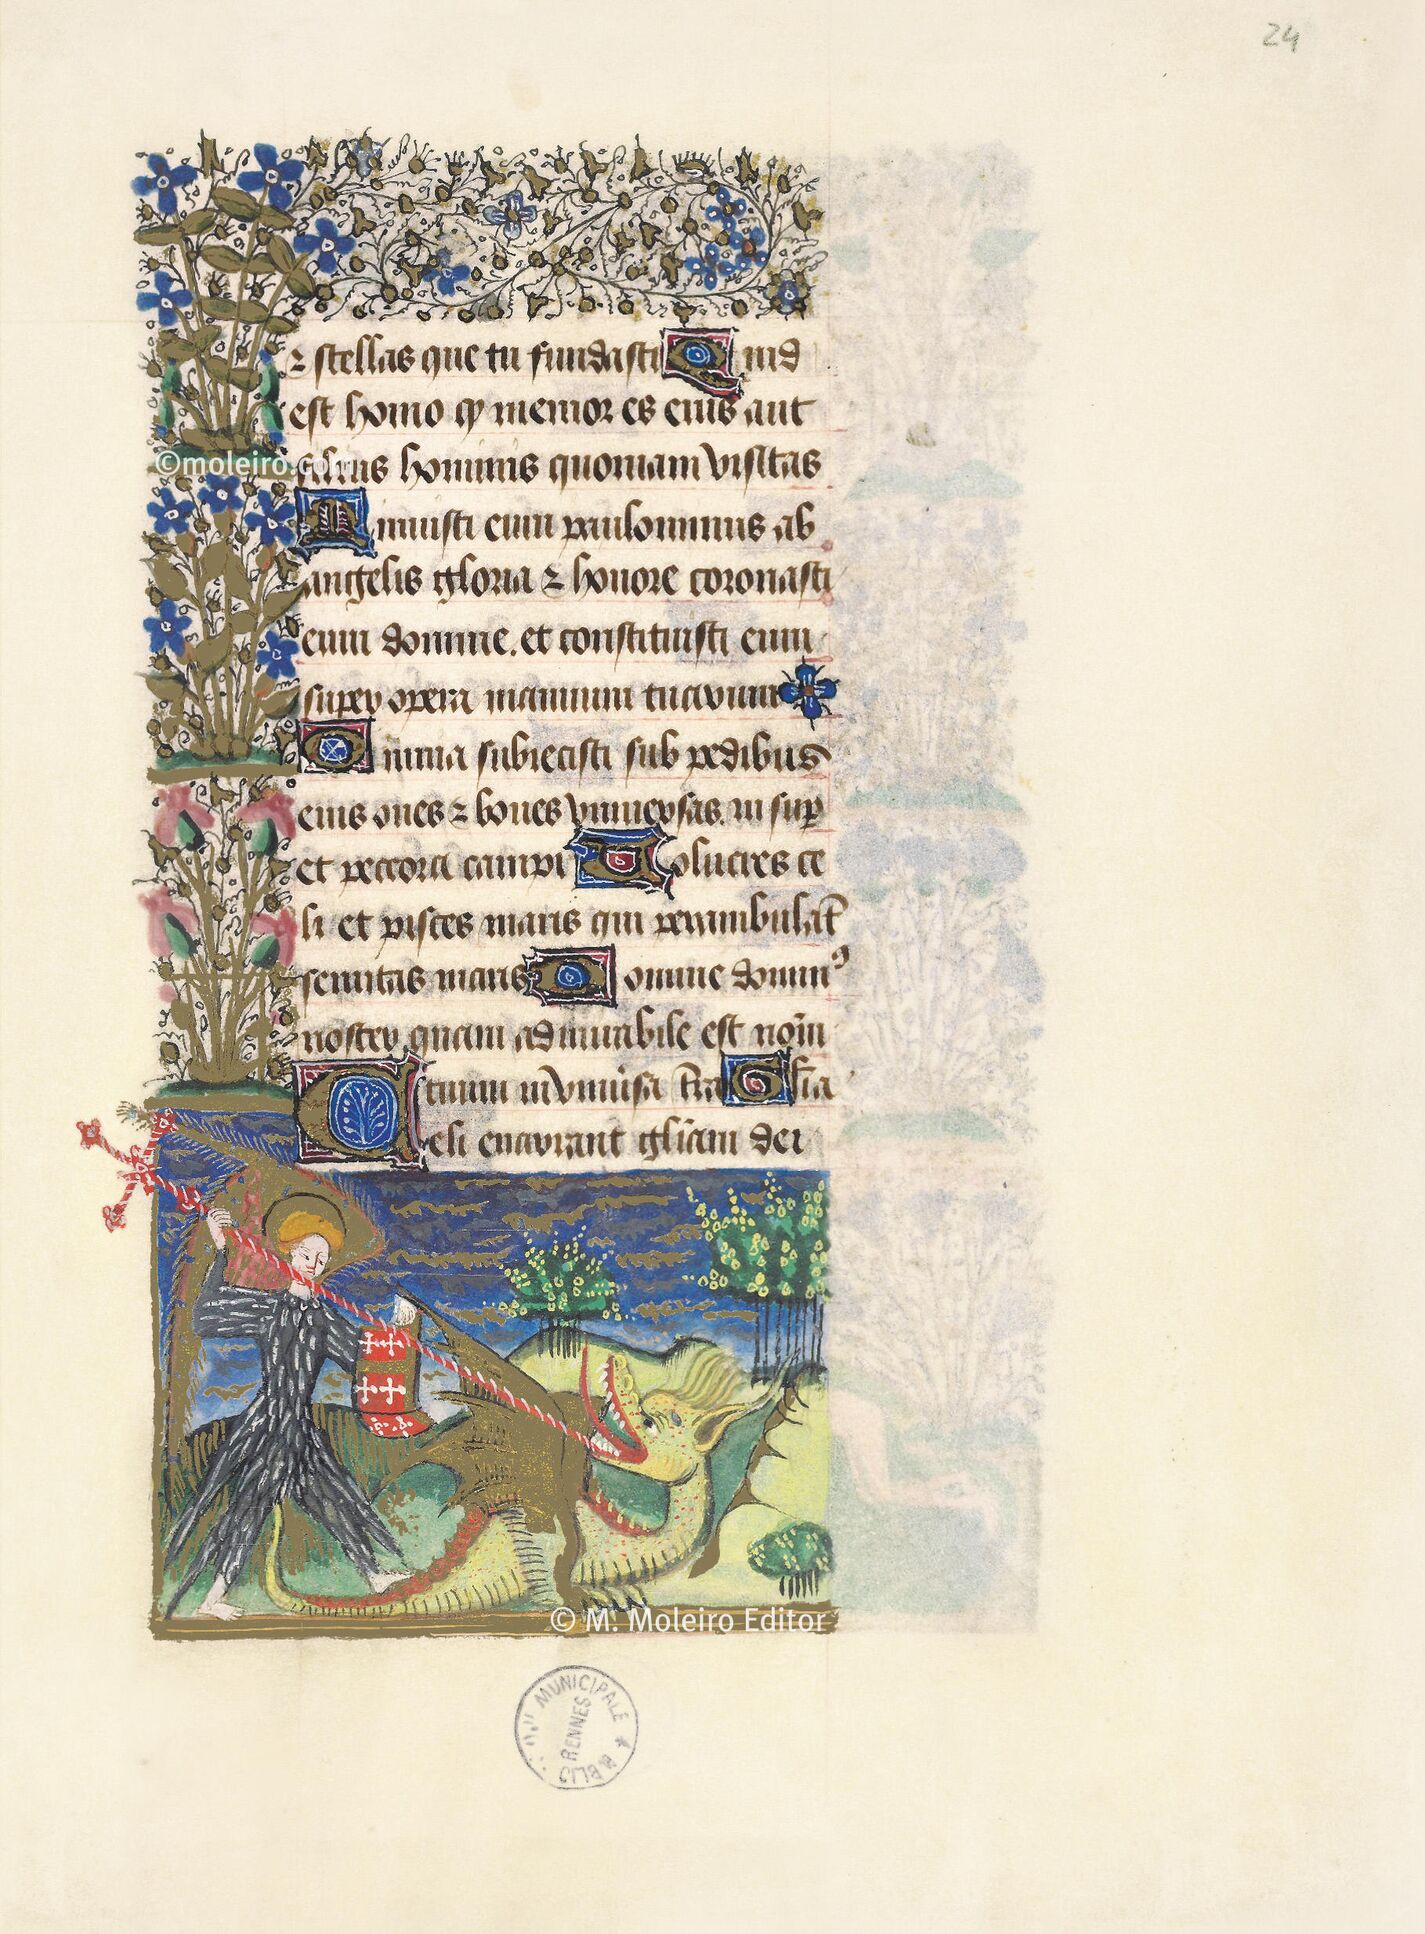 24
⁊ stellas que tu fundasti Quid
est homo ꝙ memor es eius aut
filius hominis quoniam visitas
Minuisti eum paulominus ab
angelis gloria ⁊ honore coronasti
eum domine. et constituisti eum
super opera manuum tuarum
Omnia subiecisti sub pedibus
eius oues ⁊ boues vniuersas. in sup
et peccora campi Uolucres ce
li et pisces maris qui perambulāt
semitas maris Domine domin⁹
noster quam admirabile est nom̄
tuum in vniu̇sa tr̄a Gl̄ia
Celi enarrant gl̄iam dei
©moleiro.com
© M. Moleiro Editor
MUNICIPALE
RENNES